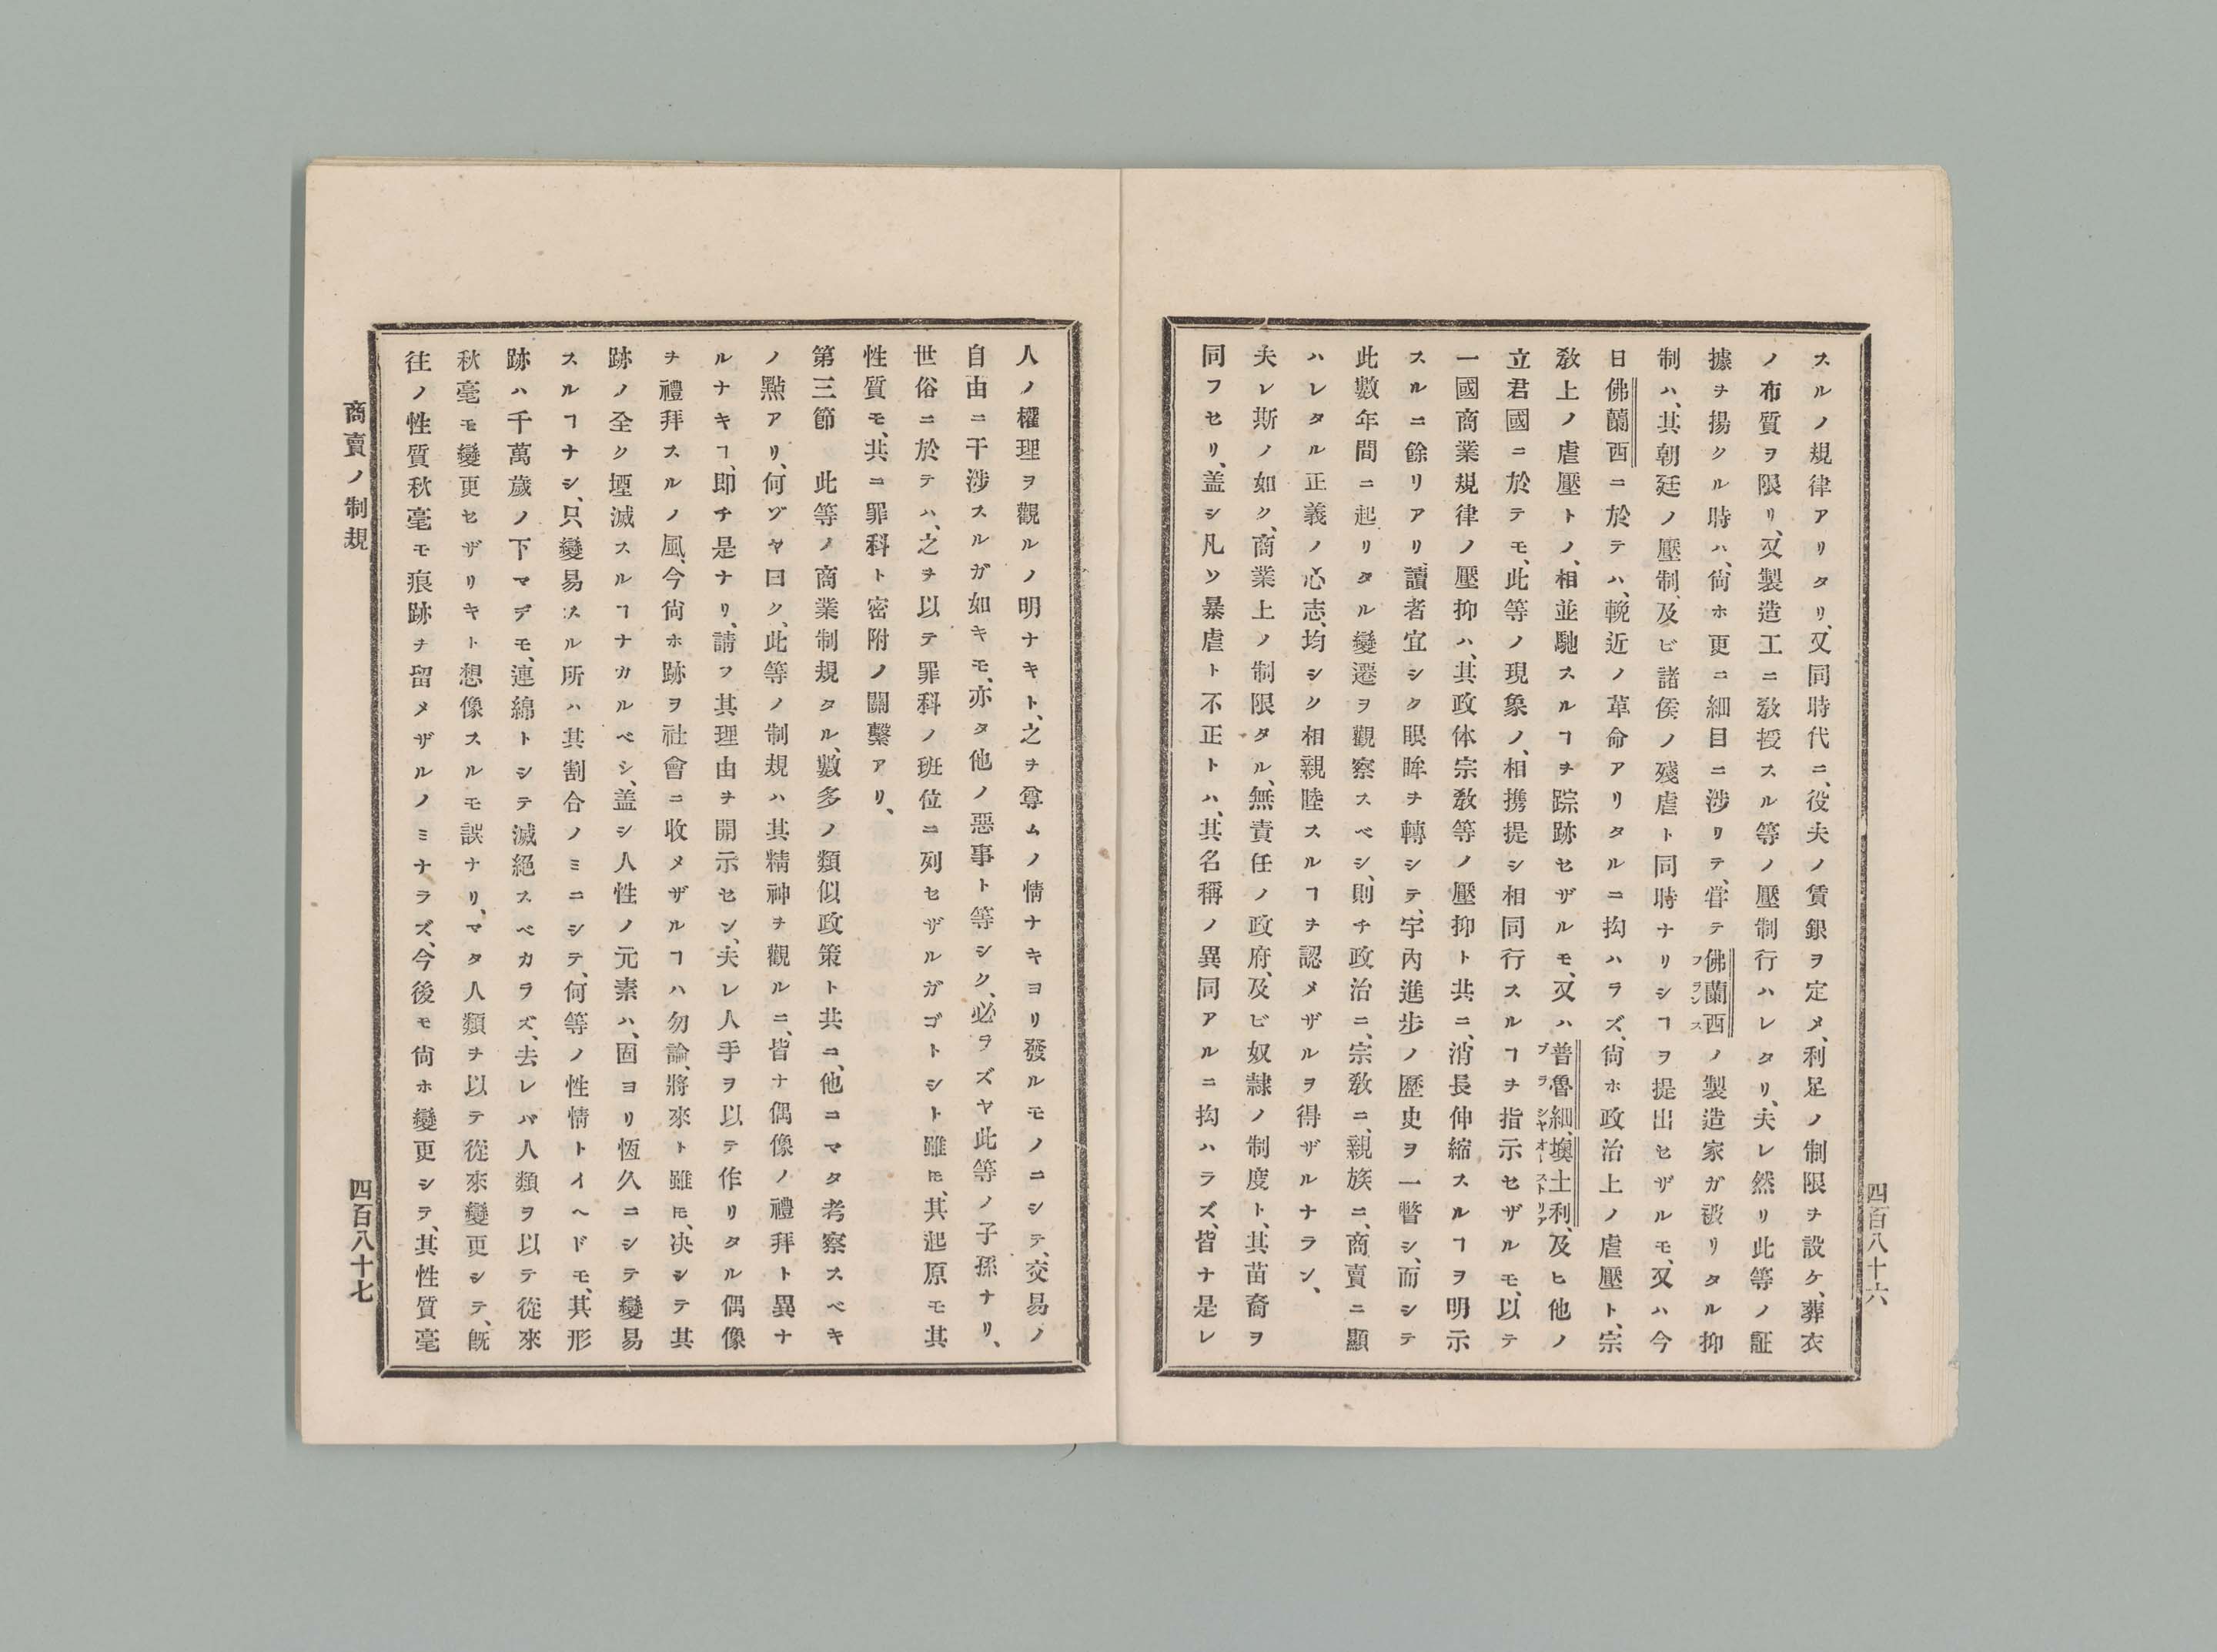 スルノ規律アリタリ、又同時代ニ、役夫ノ賃銀ヲ定メ、利足ノ制限ヲ設ケ、葬衣
ノ布質ヲ限リ、又製造工ニ敎授スル等ノ壓制行ハレタリ、夫レ然リ此等ノ証
據ヲ揚クル時ハ、尙ホ更ニ細目ニ涉リテ、嘗テ佛蘭西ノ製造家ガ被リタル抑
フランス
制ハ、其朝廷ノ壓制、及ビ諸侯ノ殘虐ト同時ナリシヿヲ提出セザルモ、又ハ今
日佛蘭西ニ於テハ、輓近ノ革命アリタルニ拘ハラズ、尙ホ政治上ノ虐壓ト、宗
敎上ノ虐壓トノ、相並馳スルヿヲ踪跡セザルモ、又ハ普魯細、墺土利、及ヒ他ノ
プラシヤオーストリア
立君國ニ於テモ、此等ノ現象ノ、相携提シ相同行スルヿヲ指示セザルモ、以テ
一國商業規律ノ壓抑ハ、其政体宗敎等ノ壓抑ト共ニ、消長伸縮スルヿヲ明示
スルニ餘リアリ、讀者宜シク眼眸ヲ轉シテ、宇內進步ノ歷史ヲ一瞥シ、而シテ
此數年間ニ起リタル變遷ヲ觀察スベシ、則チ政治ニ、宗敎ニ、親族ニ、商賣ニ顯
ハレタル正義ノ心志、均シク相親睦スルヿヲ認メザルヲ得ザルナラン、
夫レ斯ノ如ク、商業上ノ制限タル、無責任ノ政府、及ビ奴隸ノ制度ト、其苗裔ヲ
同フセリ、盖シ凡ソ暴虐ト不正トハ、其名稱ノ異同アルニ拘ハラズ、皆ナ是レ
四百八十六
人ノ權理ヲ觀ルノ明ナキト、之ヲ尊ムノ情ナキヨリ發ルモノニシテ、交易ノ
自由ニ干涉スルガ如キモ、亦タ他ノ惡事ト等シク、必ラズヤ此等ノ子孫ナリ、
世俗ニ於テハ、之ヲ以テ罪科ノ班位ニ列セザルガゴトシト雖モ、其起原モ其
性質モ、共ニ罪科ト密附ノ關繫アリ、
第三節　此等ノ商業制規タル、數多ノ類似政策ト共ニ、他ニマタ考察スベキ
ノ點アリ、何ゾヤ曰ク、此等ノ制規ハ其精神ヲ觀ルニ、皆ナ偶像ノ禮拜ト異ナ
ルナキヿ、即チ是ナリ、請フ其理由ヲ開示セン、夫レ人手ヲ以テ作リタル偶像
ヲ禮拜スルノ風、今尙ホ跡ヲ社會ニ收メザルヿハ勿論、將來ト雖モ、决シテ其
跡ノ全ク堙滅スルヿナカルベシ、盖シ人性ノ元素ハ、固ヨリ恆久ニシテ變易
スルヿナシ、只變易スル所ハ其割合ノミニシテ、何等ノ性情トイヘドモ、其形
跡ハ千萬歲ノ下マデモ、連綿トシテ滅絕スベカラズ、去レバ人類ヲ以テ從來
秋毫モ變更セザリキト想像スルモ誤ナリ、マタ人類ヲ以テ從來變更シテ、旣
往ノ性質秋毫モ痕跡ヲ留メザルノミナラズ、今後モ尙ホ變更シテ、其性質毫
商賣ノ制規
四百八十七